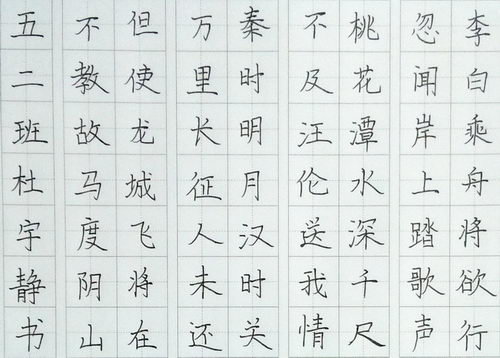 李白乘舟将欲行
忽闻岸上踏歌声
桃花潭水深千尺
不及汪伦送我情
秦时明月汉时关
万里长征人未还
但使龙城飞将在
不教故马度阴山
五二班杜宇静书